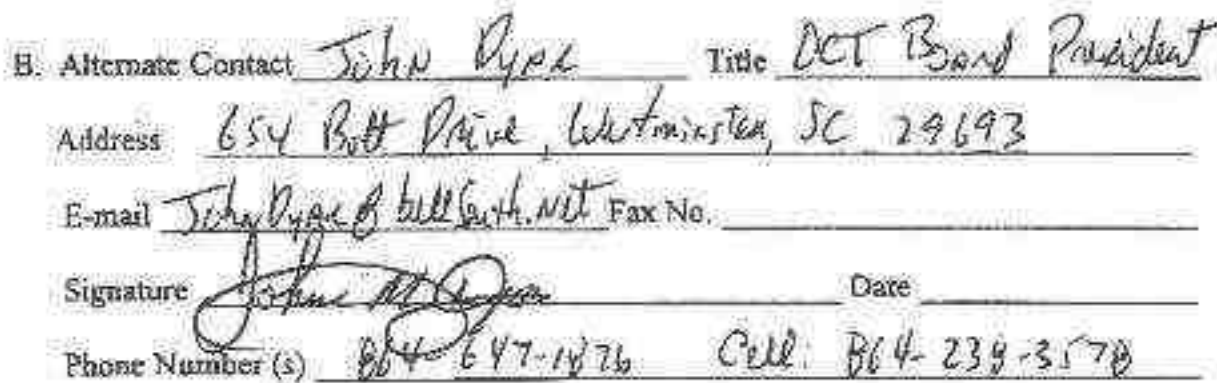 B. Alternate Contact John Dyar Title OCT Board President
Address 654 Bott Drive, Westminster, SC 29693
E-mail JohnDyar@bellsouth.net Fax No.
Signature John M Dyar Date
Phone Number (s) 864-647-1876 Cell: 864-239-3578